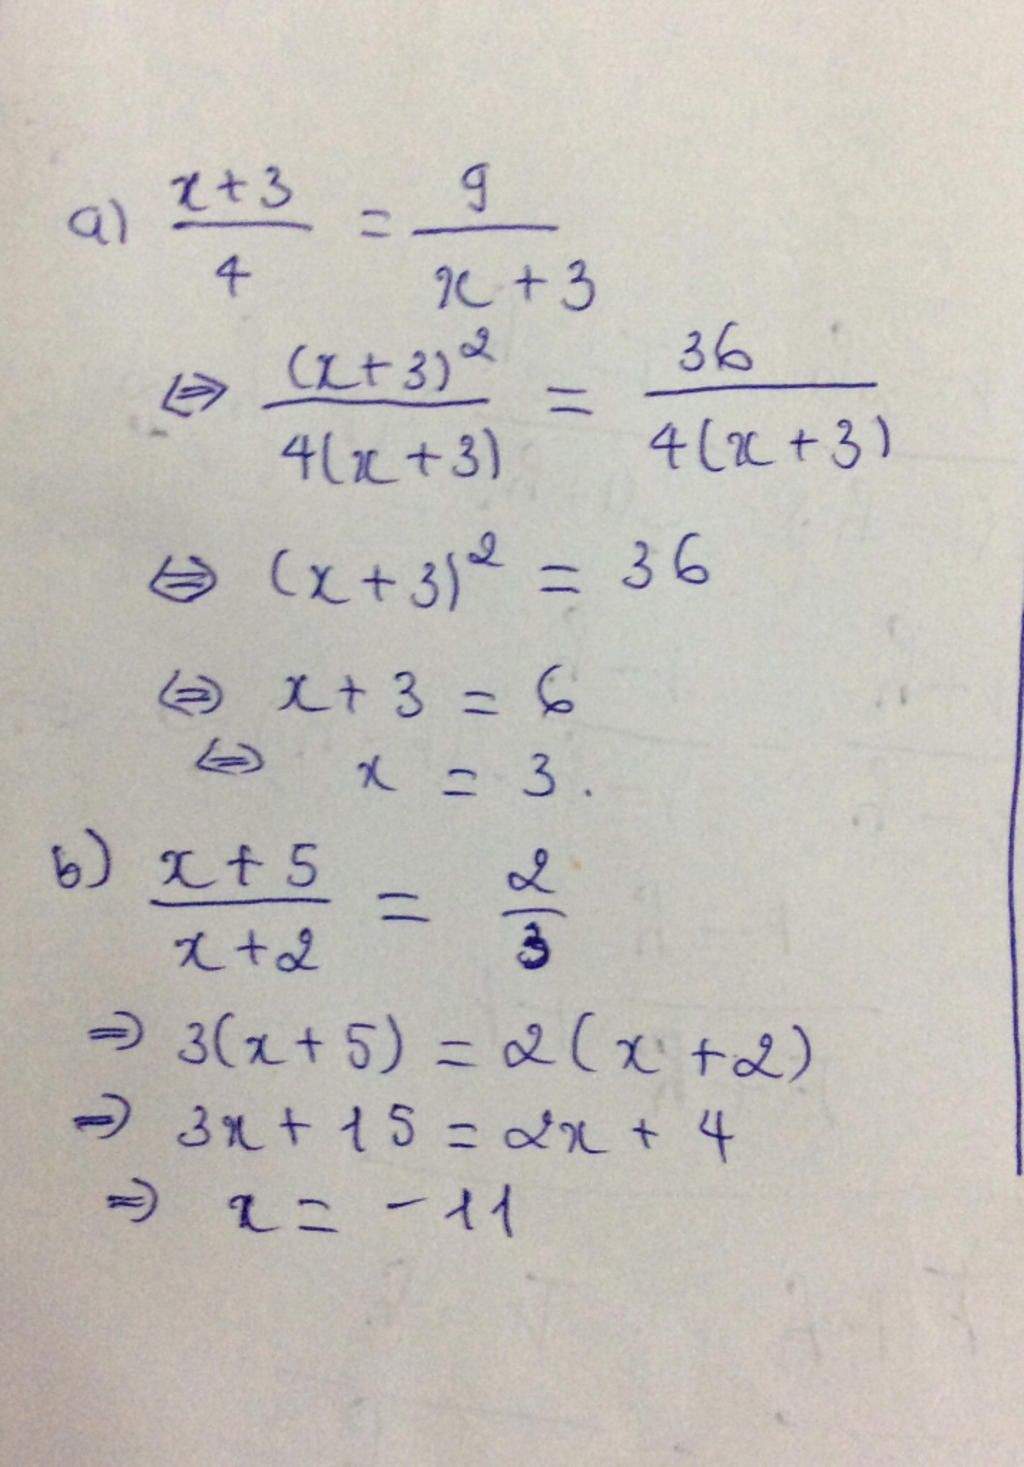 a) (x+3)/4 = 9/(x+3)
⇔ (x+3)²/4(x+3) = 36/4(x+3)
⇔ (x+3)² = 36
⇔ x+3 = 6
⇔ x = 3.
b) (x+5)/(x+2) = 2/3
⇒ 3(x+5) = 2(x+2)
⇒ 3x+15 = 2x+4
⇒ x = -11